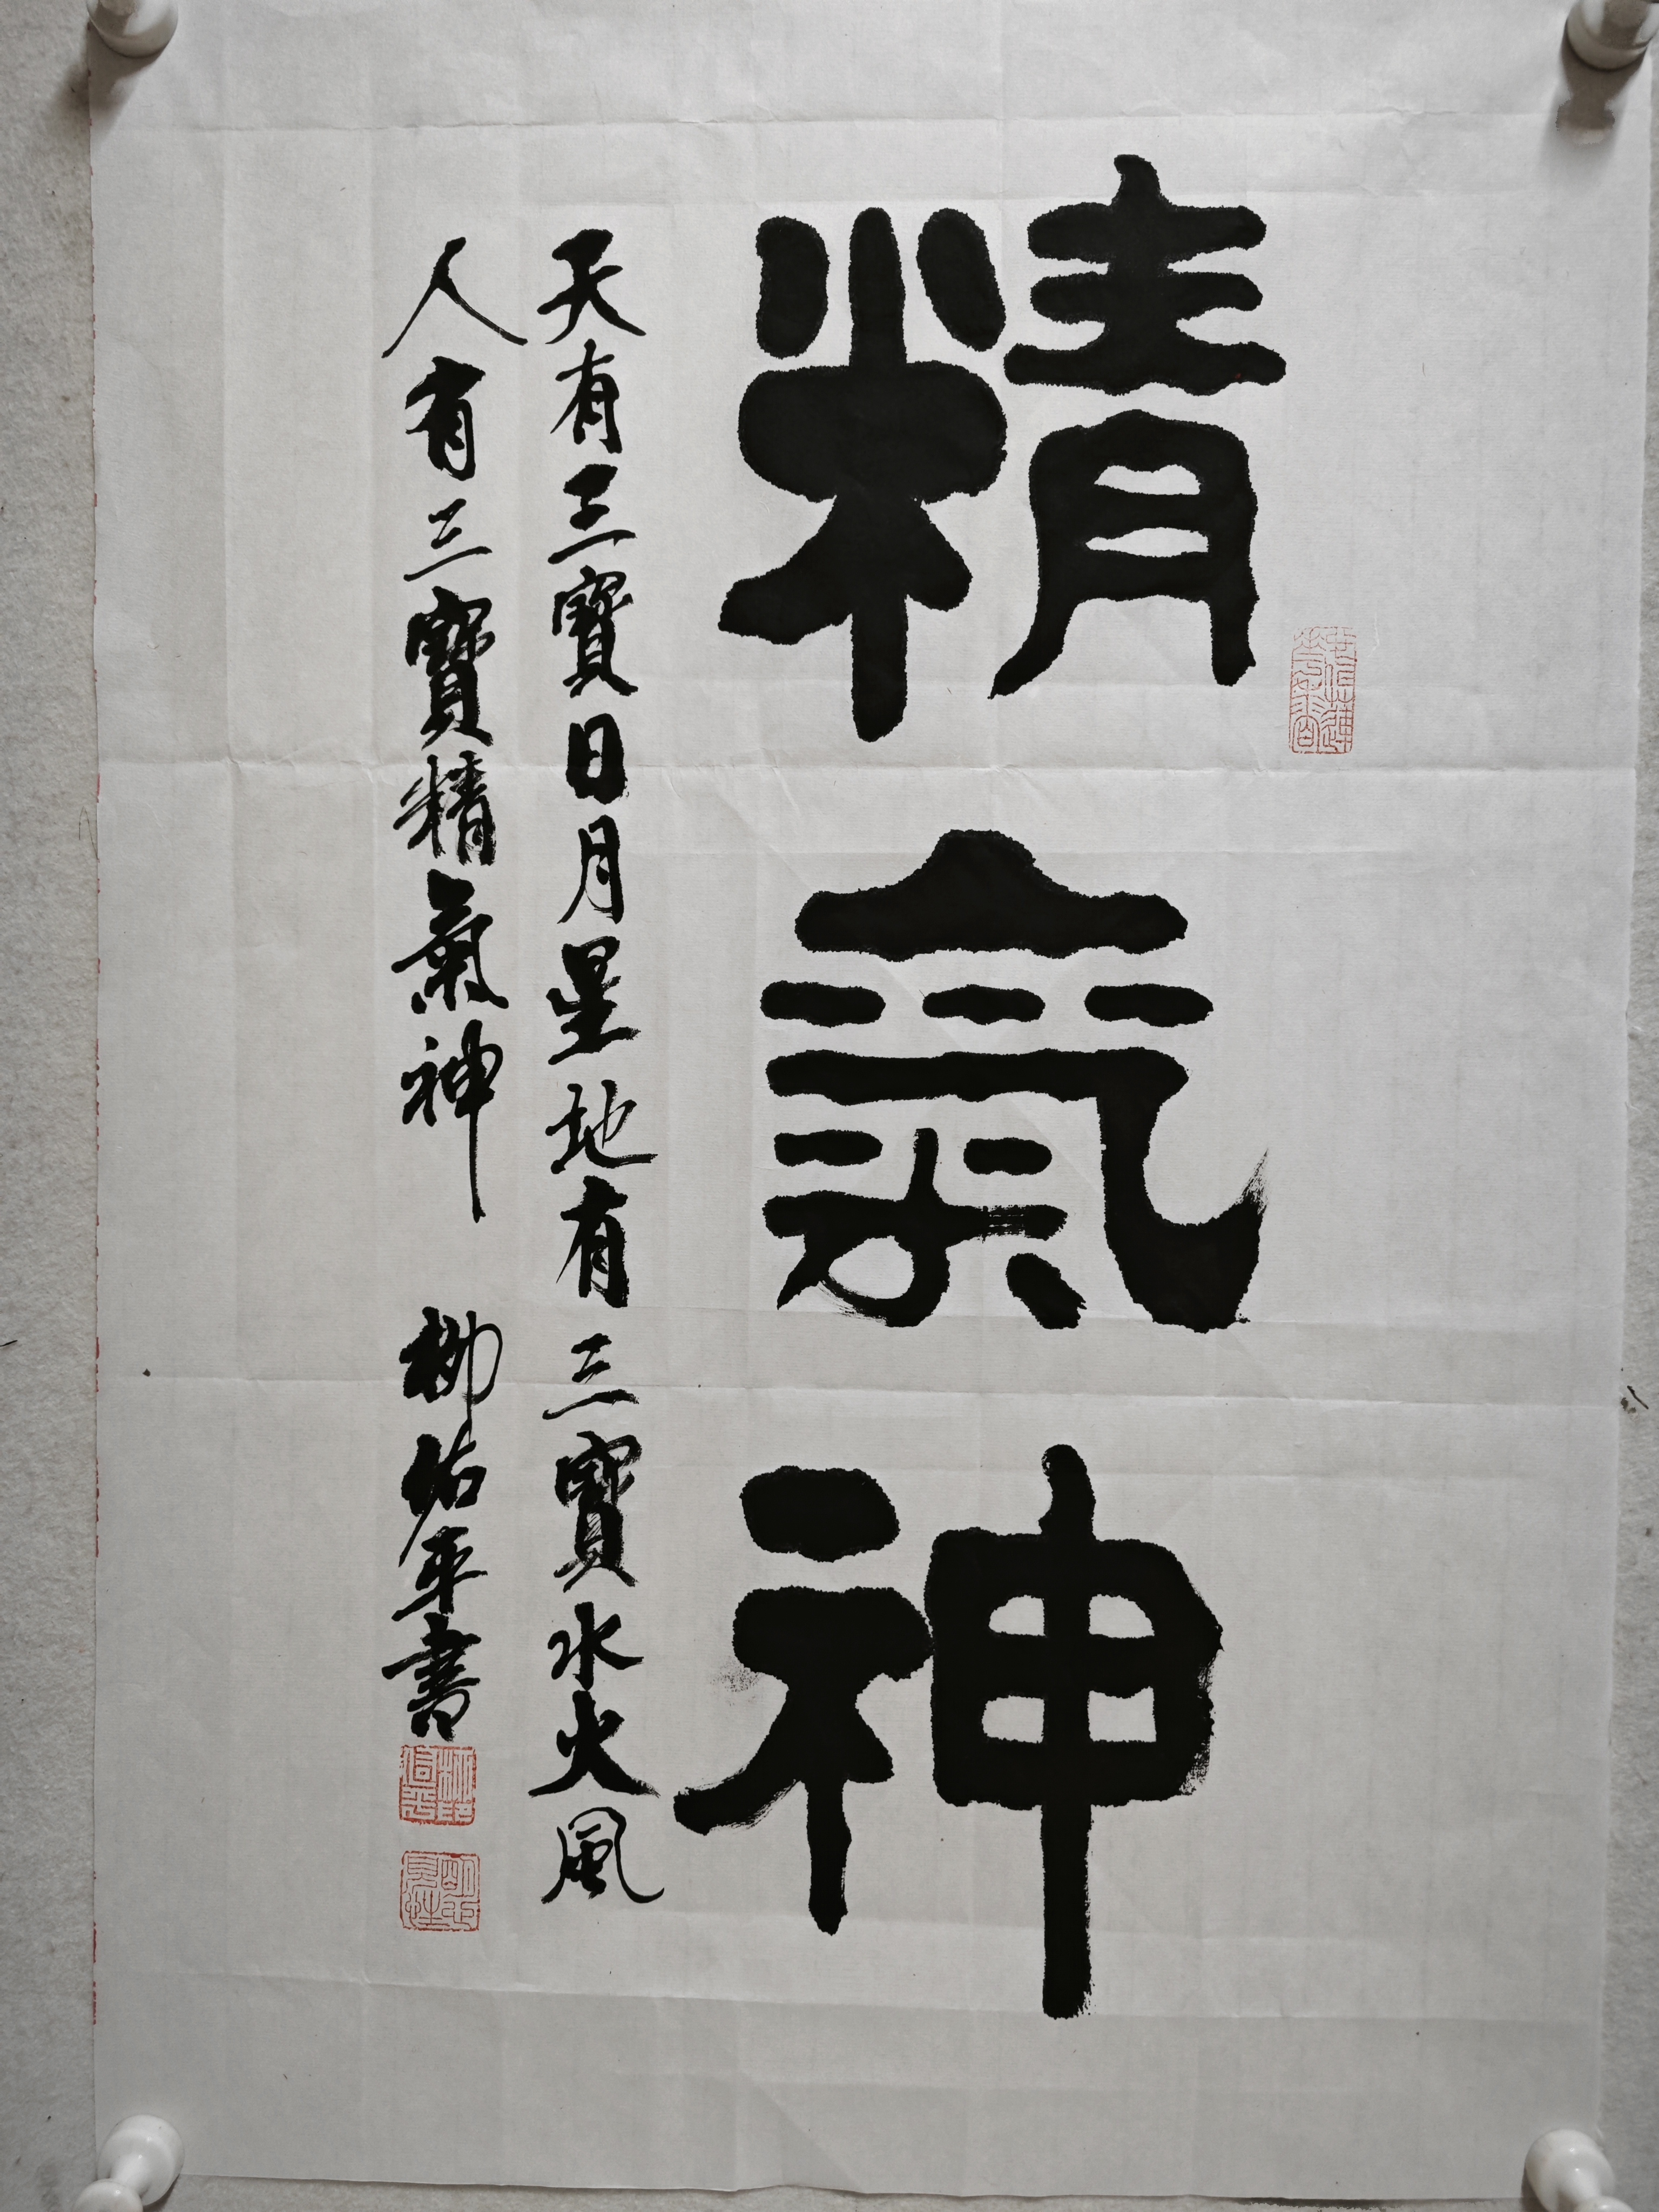 精氣神
天有三寶日月星地有三寶水火風
人有三寶精氣神 柳佑平書